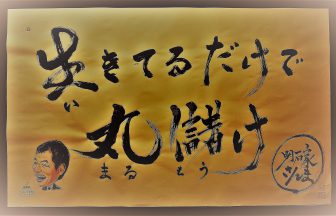 生きてるだけで
い
丸儲け
まる もう
明石家
さんま